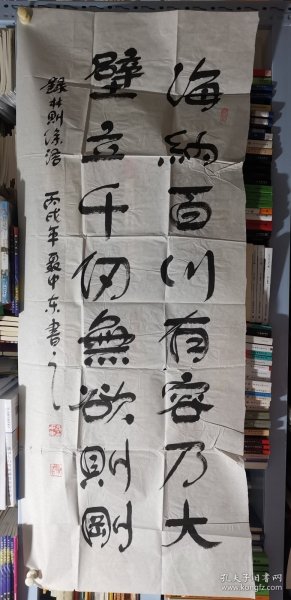 海納百川有容乃大
壁立千仞無欲則剛
錄林則徐語 丙戌年 中東書
孔夫子旧书网